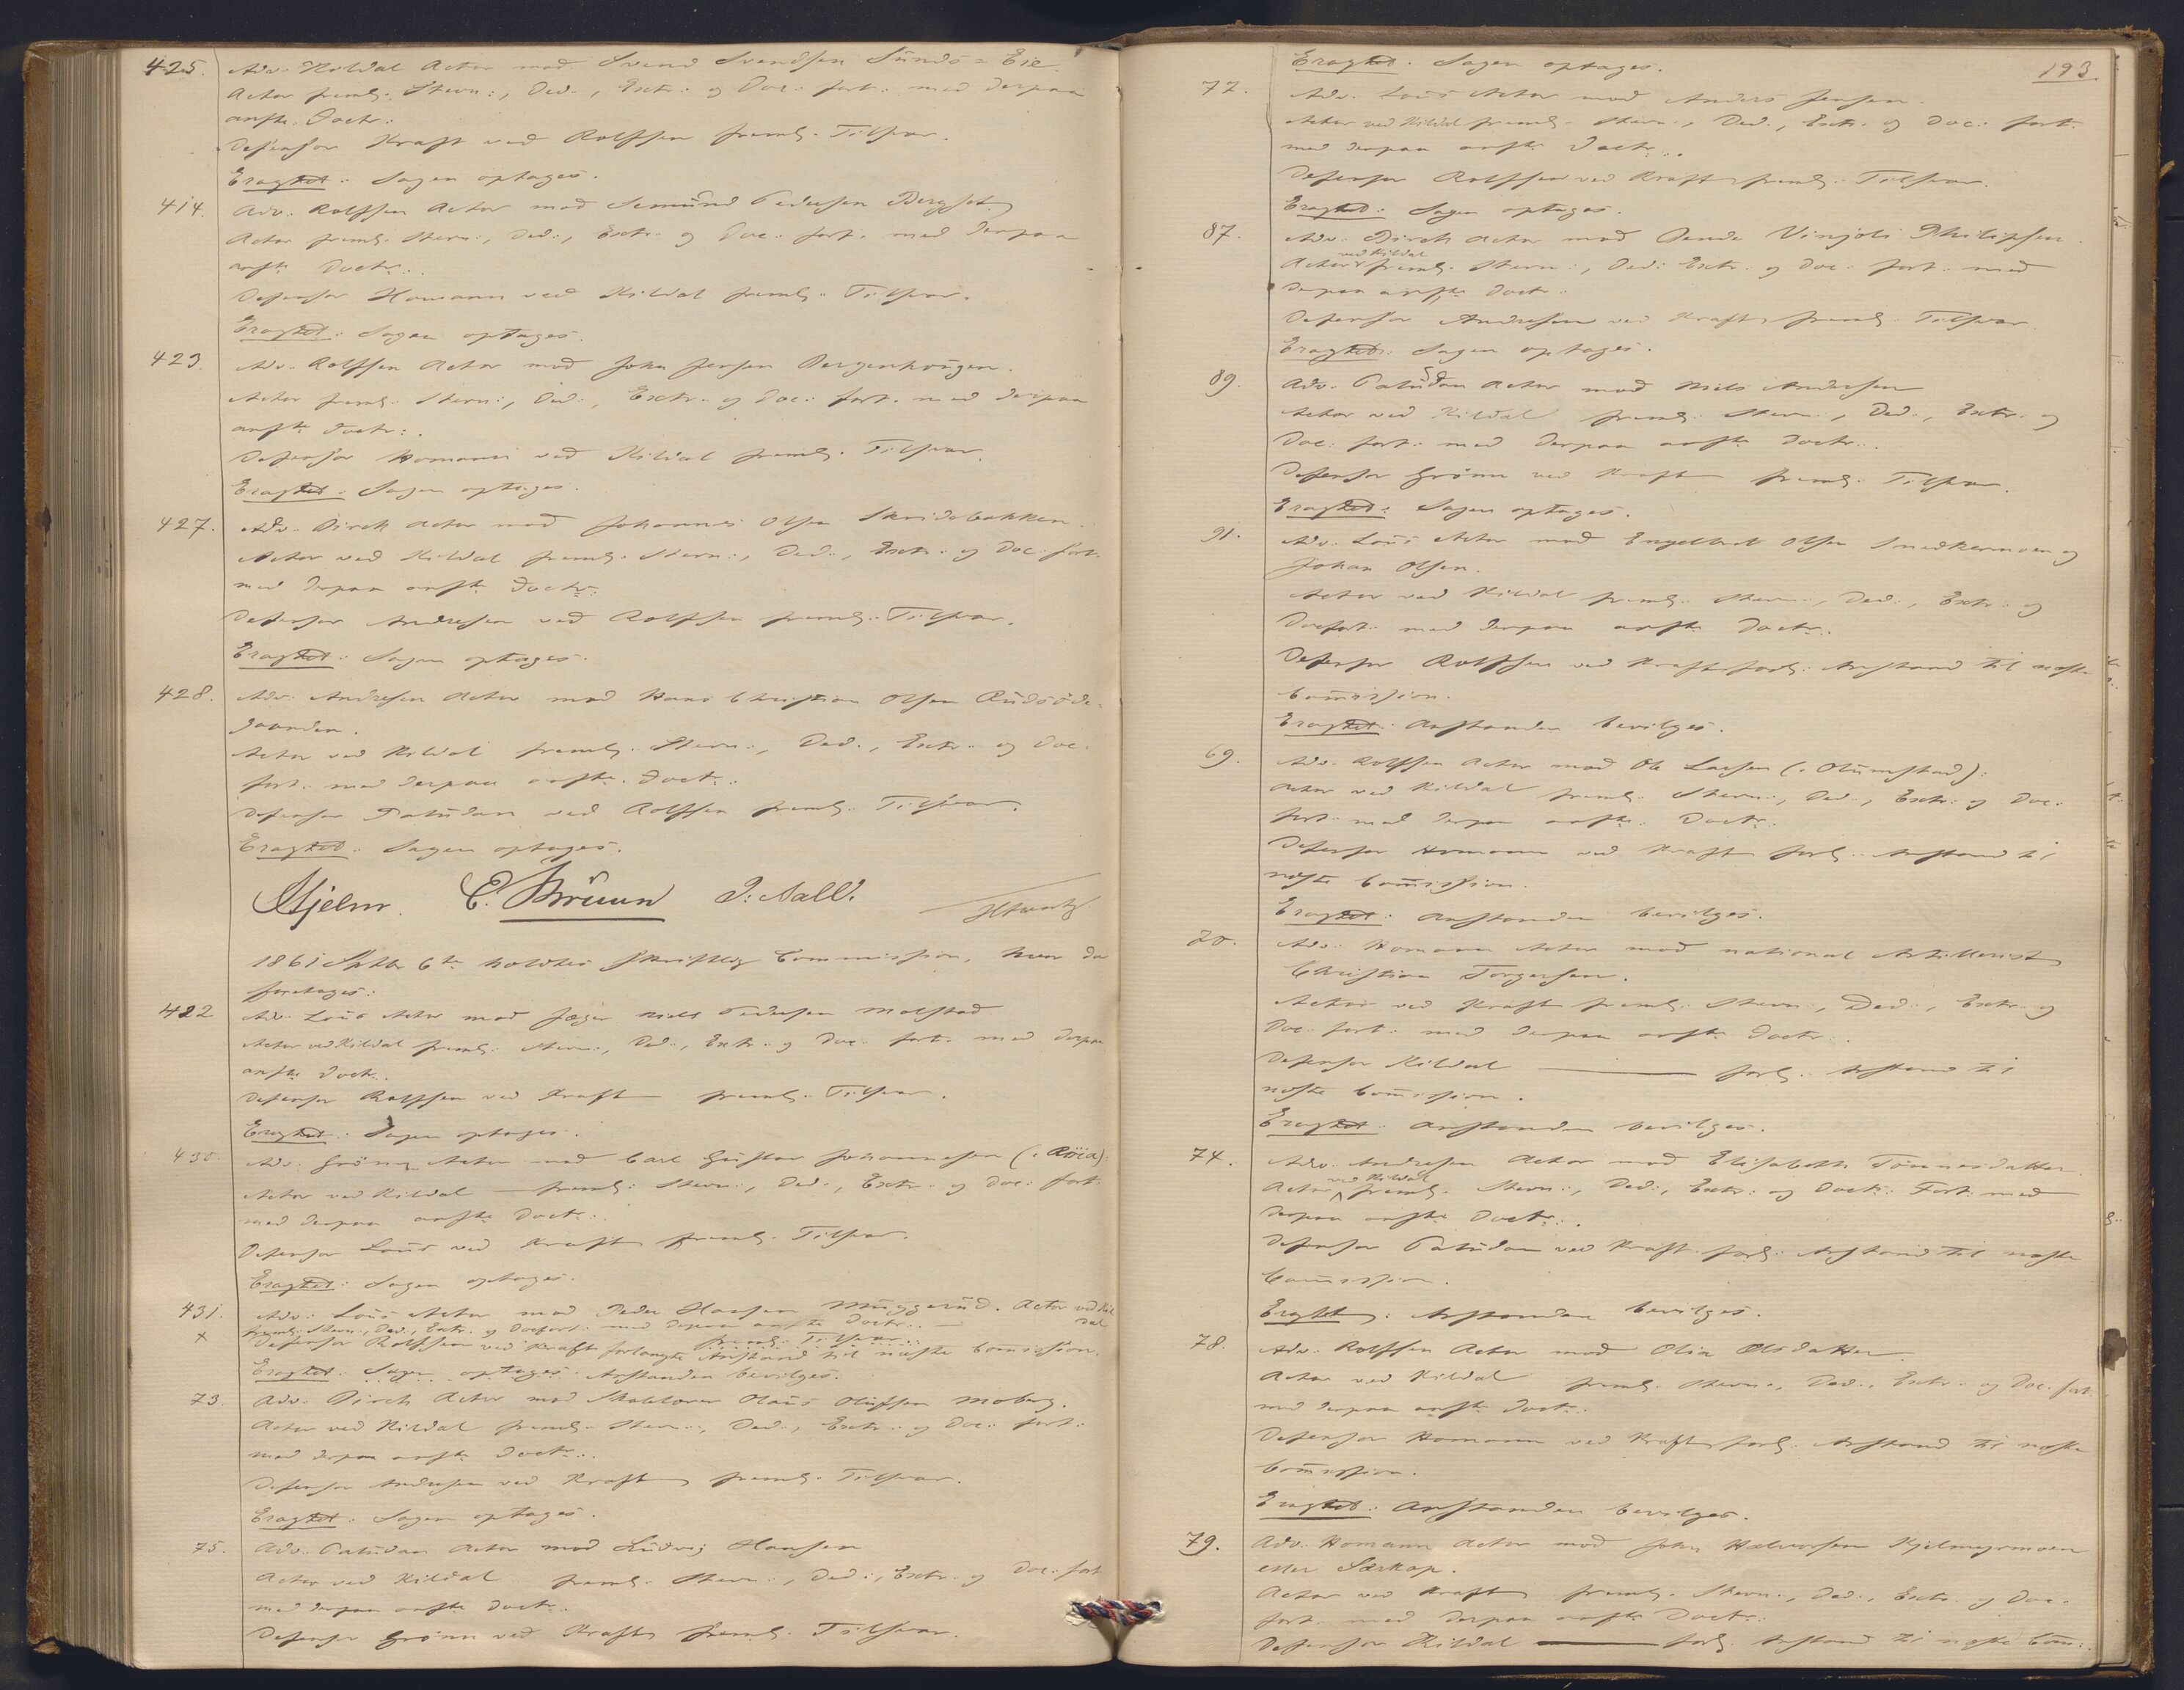 425. Adv. Kildal Actor mod Svend Svendsen Sunds-Eie.
Actor freml. Stevn:, Ded., Extr. og Doc. fort. med derpaa
anfte. Doctr:
Defensor Kraft ved Rolffsen freml. Tilsvar.
Eragtet: Sagen optages.
414. Adv. Rolffsen Actor mod Semund Pedersen Bergset
Actor freml. Stevn:, Ded:, Extr. og Doc: fort. med derpaa
anfte Doctr:.
Defensor Homann ved Kildal freml. Tilsvar.
Eragtet: Sagen optages.
423. Adv. Rolffsen Actor mod John Jensen Bergenhougen.
Actor freml. Stevn:, Ded:, Extr. og Doc: fort. med derpaa
anfte Doctr:.
Defensor Homann ved Kildal freml. Tilsvar.
Eragtet: Sagen optages.
427. Adv. Birch Actor mod Johannes Olsen Skridebakken.
Actor ved Kildal freml. Stevn:, Ded:, Extr. og Doc: fort.
med derpaa anfte Doctr:
Defensor Andresen ved Rolffsen freml. Tilsvar.
Eragtet: Sagen optages.
428. Adv. Andresen Actor mod Hans Christian Olsen Rudsöde-
gaarden.
Actor ved Kildal freml. Stevn:, Ded., Extr. og Doc.
fort. med derpaa anfte. Doctr:
Defensor Paludan ved Rolffsen freml. Tilsvar.
Eragtet: Sagen optages.
Hjelm. E. Bruun J. Aall.
1861 Septbr 6te holdtes skriftlig Commission, hvor da
foretoges:
422 Adv. Lous Actor mod Jæger Niels Pedersen Molstad
Actor ved Kildal freml. Stevn:, Ded., Extr. og Doc. fort. med derpaa
anfte Doctr.
Defensor Rolffsen ved Kraft freml. Tilsvar.
Eragtet: Sagen optages.
430. Adv. Grönn Actor mod Carl Gustav Johannesen
Actor ved Kildal freml: Stevn:, Ded., Extr. og Doc. fort.
med derpaa anfte Doctr:.
Defensor Lous ved Kraft freml. Tilsvar.
Eragtet: Sagen optages.
431. Adv: Lous Actor mod Peder Hansen Muggerud. Actor ved Kil
dal
x freml. Stevn:, Ded., Extr. og Doc fort. med derpaa anfte Doctr.
freml. Tilsvar.
Defensor Rolffsen ved Kraft forlangte Anstand til næste Comission.
Eragtet: Sagen optages. Anstanden bevilges.
73. Adv. Birch Actor mod Skolelærer Olaus Olufsen Moberg.
Actor ved Kildal freml. Stevn:, Ded:, Extr. og Doc: fort:
med derpaa anfte Doctr:.
Defensor Andresen ved Kraft freml. Tilsvar.
Eragtet: Sagen optages.
75. Adv. Paludan Actor mod Ludvig Hansen
Actor ved Kildal freml. Stevn:, Ded:, Extr. og Doc. fort
med derpaa anfte Doctr.
Defensor Grönn ved Kraft freml. Tilsvar.
193.
Eragtet: Sagen optages.
77. Adv. Lous Actor mod Anders Jensen.
Actor ved Kildal freml. Stevn:, Ded., Extr. og Doc: fort.
med derpaa anfte Doctr:.
Defensor Rolffsen ved Kraft freml. Tilsvar.
Eragtet: Sagen optages.
87. Adv. Birch Actor mod Vinjoli Philipsen.
ved Kildal
Actor freml. Stevn:, Ded: Extr. og Doc. fort. med
derpaa anfte Doctr:
Defensor Andresen ved Kraft freml. Tilsvar.
Eragtet: Sagen optages.
89. Adv. Paludan Actor mod Niels Andersen
Actor ved Kildal freml. Stevn:, Ded., Extr. og
Doc. fort. med derpaa anfte Doctr:.
Defensor Grönn ved Kraft freml. Tilsvar.
Eragtet: Sagen optages.
91. Adv. Lous Actor mod Engelbret Olsen Snedkermoen og
Johan Olsen.
Actor ved Kildal freml. Stevn:, Ded., Extr. og
Doc fort. med derpaa anfte Doctr:.
Defensor Rolffsen ved Kraft forl. Anstand til næste
Comission.
Eragtet: Anstanden bevilges.
69. Adv. Rolffsen Actor mod Ole Larsen (: Olumstad):
Actor ved Kildal freml. Stevn:, Ded., Extr. og Doc:
fort. med derpaa anfte. Doctr.
Defensor Homann ved Kraft forl. Anstand til
næste Comission.
Eragtet: Anstanden bevilges.
70. Adv. Homann Actor mod national Artillerist
Christian Torgersen.
Actor ved Kraft freml. Stevn:, Ded:, Extr. og
Doc. fort. med derpaa anfte Doctr:.
Defensor Kildal forl. Anstand til
næste Comission.
Eragtet: Anstanden bevilges.
74. Adv. Andresen Actor mod Elisabeth Tönnesdatter
ved Kildal
Actor freml. Stevn:, Ded:, Extr: og Doct: Fort. med
derpaa anfte Doctr:.
Defensor Paludan ved Kraft forl: Anstand til næste
Comission.
Eragtet: Anstanden bevilges.
78. Adv. Rolffsen Actor mod Olia Olsdatter
Actor ved Kildal freml. Stevn:, Ded., Extr. og Doc. fort.
med derpaa anfte Doctr.
Defensor Homann ved Kraft forl. Anstand til næste
Comission.
Eragtet: Anstanden bevilges.
79. Adv. Homann Actor mod John Halvorsen Kjelmyrmoen
eller Særkap.
Actor ved Kraft freml. Stevn:, Ded., Extr. og Doc.
fort. med derpaa anfte Doctr:
Defensor Kildal forl. Anstand til næste Com: